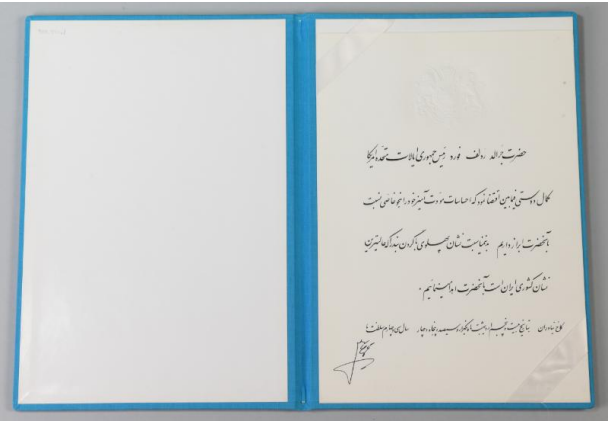 حضرت جرالد رودلف فورد رئیس جمهوری ایالات متحده امریکا
کمال دوستی فیمابین اقتضا نمود که احساسات مودت آمیز خود را بنحو خاصی نسبت
بآنحضرت ابراز داریم بدینمناسبت نشان پهلوی با گردن بند را که عالیترین
نشان کشوری ایران است بآنحضرت اهدا مینمائیم.
کاخ نیاوران بتاریخ بیست و پنجم اردیبهشت ماه یکهزار و سیصد و پنجاه و چهار سال سی و چهارم سلطنت ما